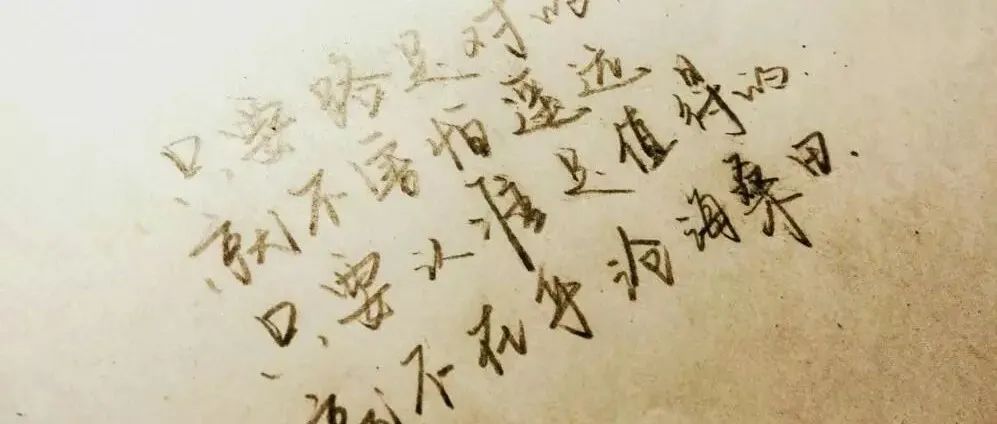 只要路是对的
就不害怕遥远
只要认准是值得的
就不在乎沧海桑田.